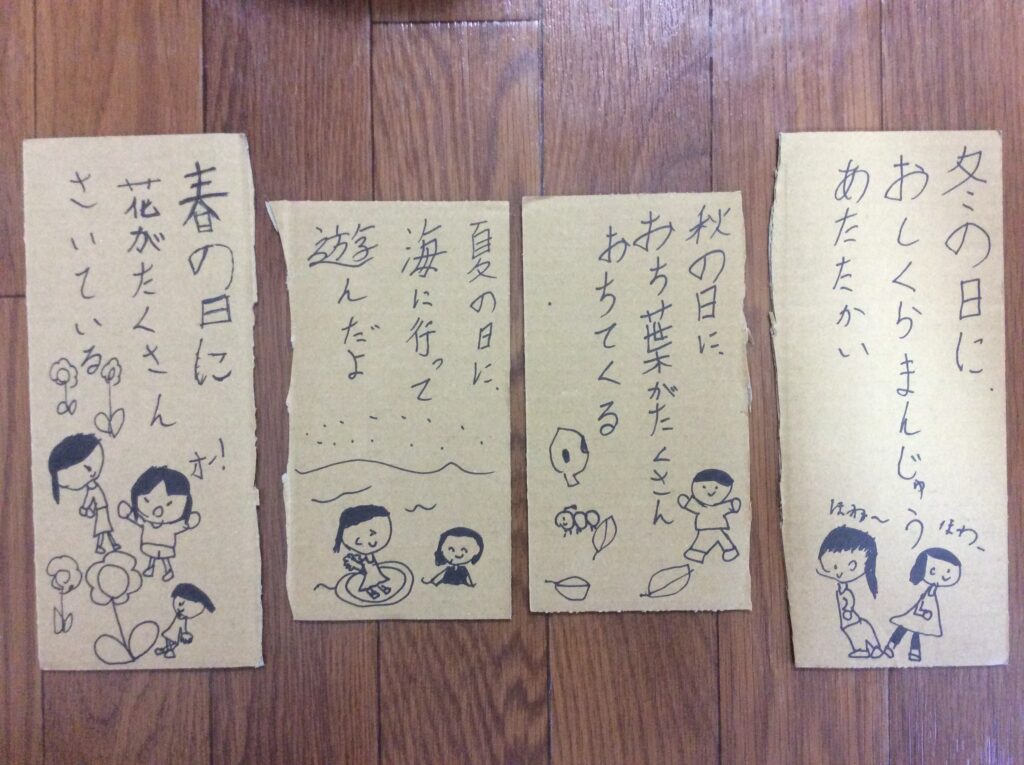 春の日に
花がたくさん
さいている
オー!
夏の日に、
海に行って
遊んだよ
秋の日に、
おち葉がたくさん
おちてくる
冬の日に、
おしくらまんじゅう
あたたかい
ほわ~